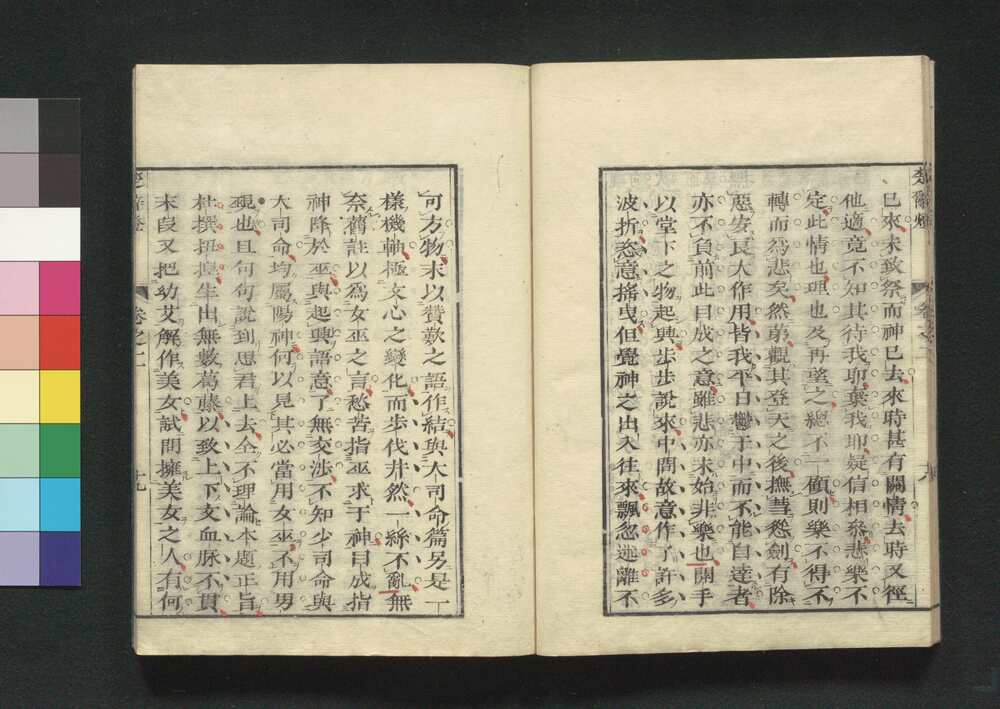 楚辭燈
已來未致祭而神已去來時甚有關情去時又徑
他適竟不知其待我耶棄我耶疑信相參悲樂不
定此情也理也及再望之總不一顧則樂不得不
轉而為悲矣然第觀其登天之後撫彗慫劍有除
惡安良大作用皆我平日鬱于中而不能自達者
亦不負前此目成之意雖悲亦未始非樂也開手
以堂下之物起興步步說來中間故意作了許多
波折恣意搖曳但覺神之出入往來飄忽迷離不
可方物末以贊歎之語作結與大司命篇另是一
樣機軸極文心之變化而步伐井然一絲不亂無
奈舊註以為女巫之言愁苦指巫求于神目成指
神降於巫與起興語意了無交涉不知少司命與
大司命均屬陽神何以見其必當用女巫不用男
覡也且句句說到思君上去全不理論本題正旨
杜撰扭捏生出無數葛藤以致上下文血脉不貫
末段又把幼艾解作美女試問擁美女之人有何
卷之二
九